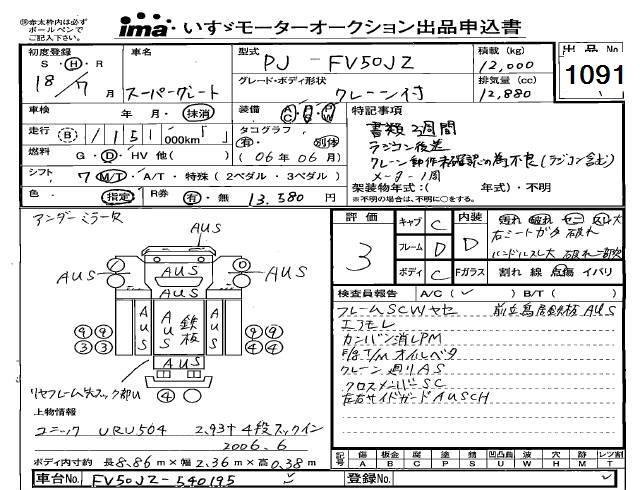 ㊟赤太枠内は必ず
ボールペンで
ご記入下さい。
ima いすゞモーターオークション出品申込書
初度登録
S・H・R
18/7月
車名
スーパーグレート
型式
PJ - FV50JZ
積載 (kg)
12,000
出品No
1091
グレード・ボディ形状
クレーン付
排気量 (cc)
12,880
車検 年・月・抹消
装備 A/C P/S P/W
特記事項
書類3週間
ラジコン後送
クレーン動作未確認の為不良(ラジコン含む)
メーター1周
走行 B 1151 000km
タコグラフ
有・別体
(06年06月)
燃料 G・D・HV 他( )
シフト 7 M/T・A/T・特殊(2ペダル・3ペダル)
架装物年式:( 年式)・不明
※不明の場合は、不明に○をする。
色 指定 R券 有・無 13,580 円
アンダーミラーX
AUS
AUS
AUS
AUS
AUS
AUS
AUS
AUS
鉄板
リヤフレーム先フック部U
上物情報
ユニック URU504 2.93t 4段フックイン
2006.6
ボディ内寸約 長8.86m×幅2.36m×高0.38m
評価
3
キャブ C
フレーム D
ボディ C
内装 D
Fガラス 割れ 線 点傷 イパリ
右シートガタ 破れ
ハンドルスレ大 破れ一部欠
検査員報告 A/C( ✓ ) B/T( )
フレームSCWヤセ 前立鳥居鉄板AUS
エアモレ
カンバン消しPM
E/g T/M オイルベタ
クレーン廻りAS
クロスメンバーSC
左右サイドガードAUSCH
記号 傷 板金 腐 塗 錆 凹凸鳥 波 穴 跡 レンズ割
A B C P S U W H M T
車台No. FV50JZ-540195
登録No.